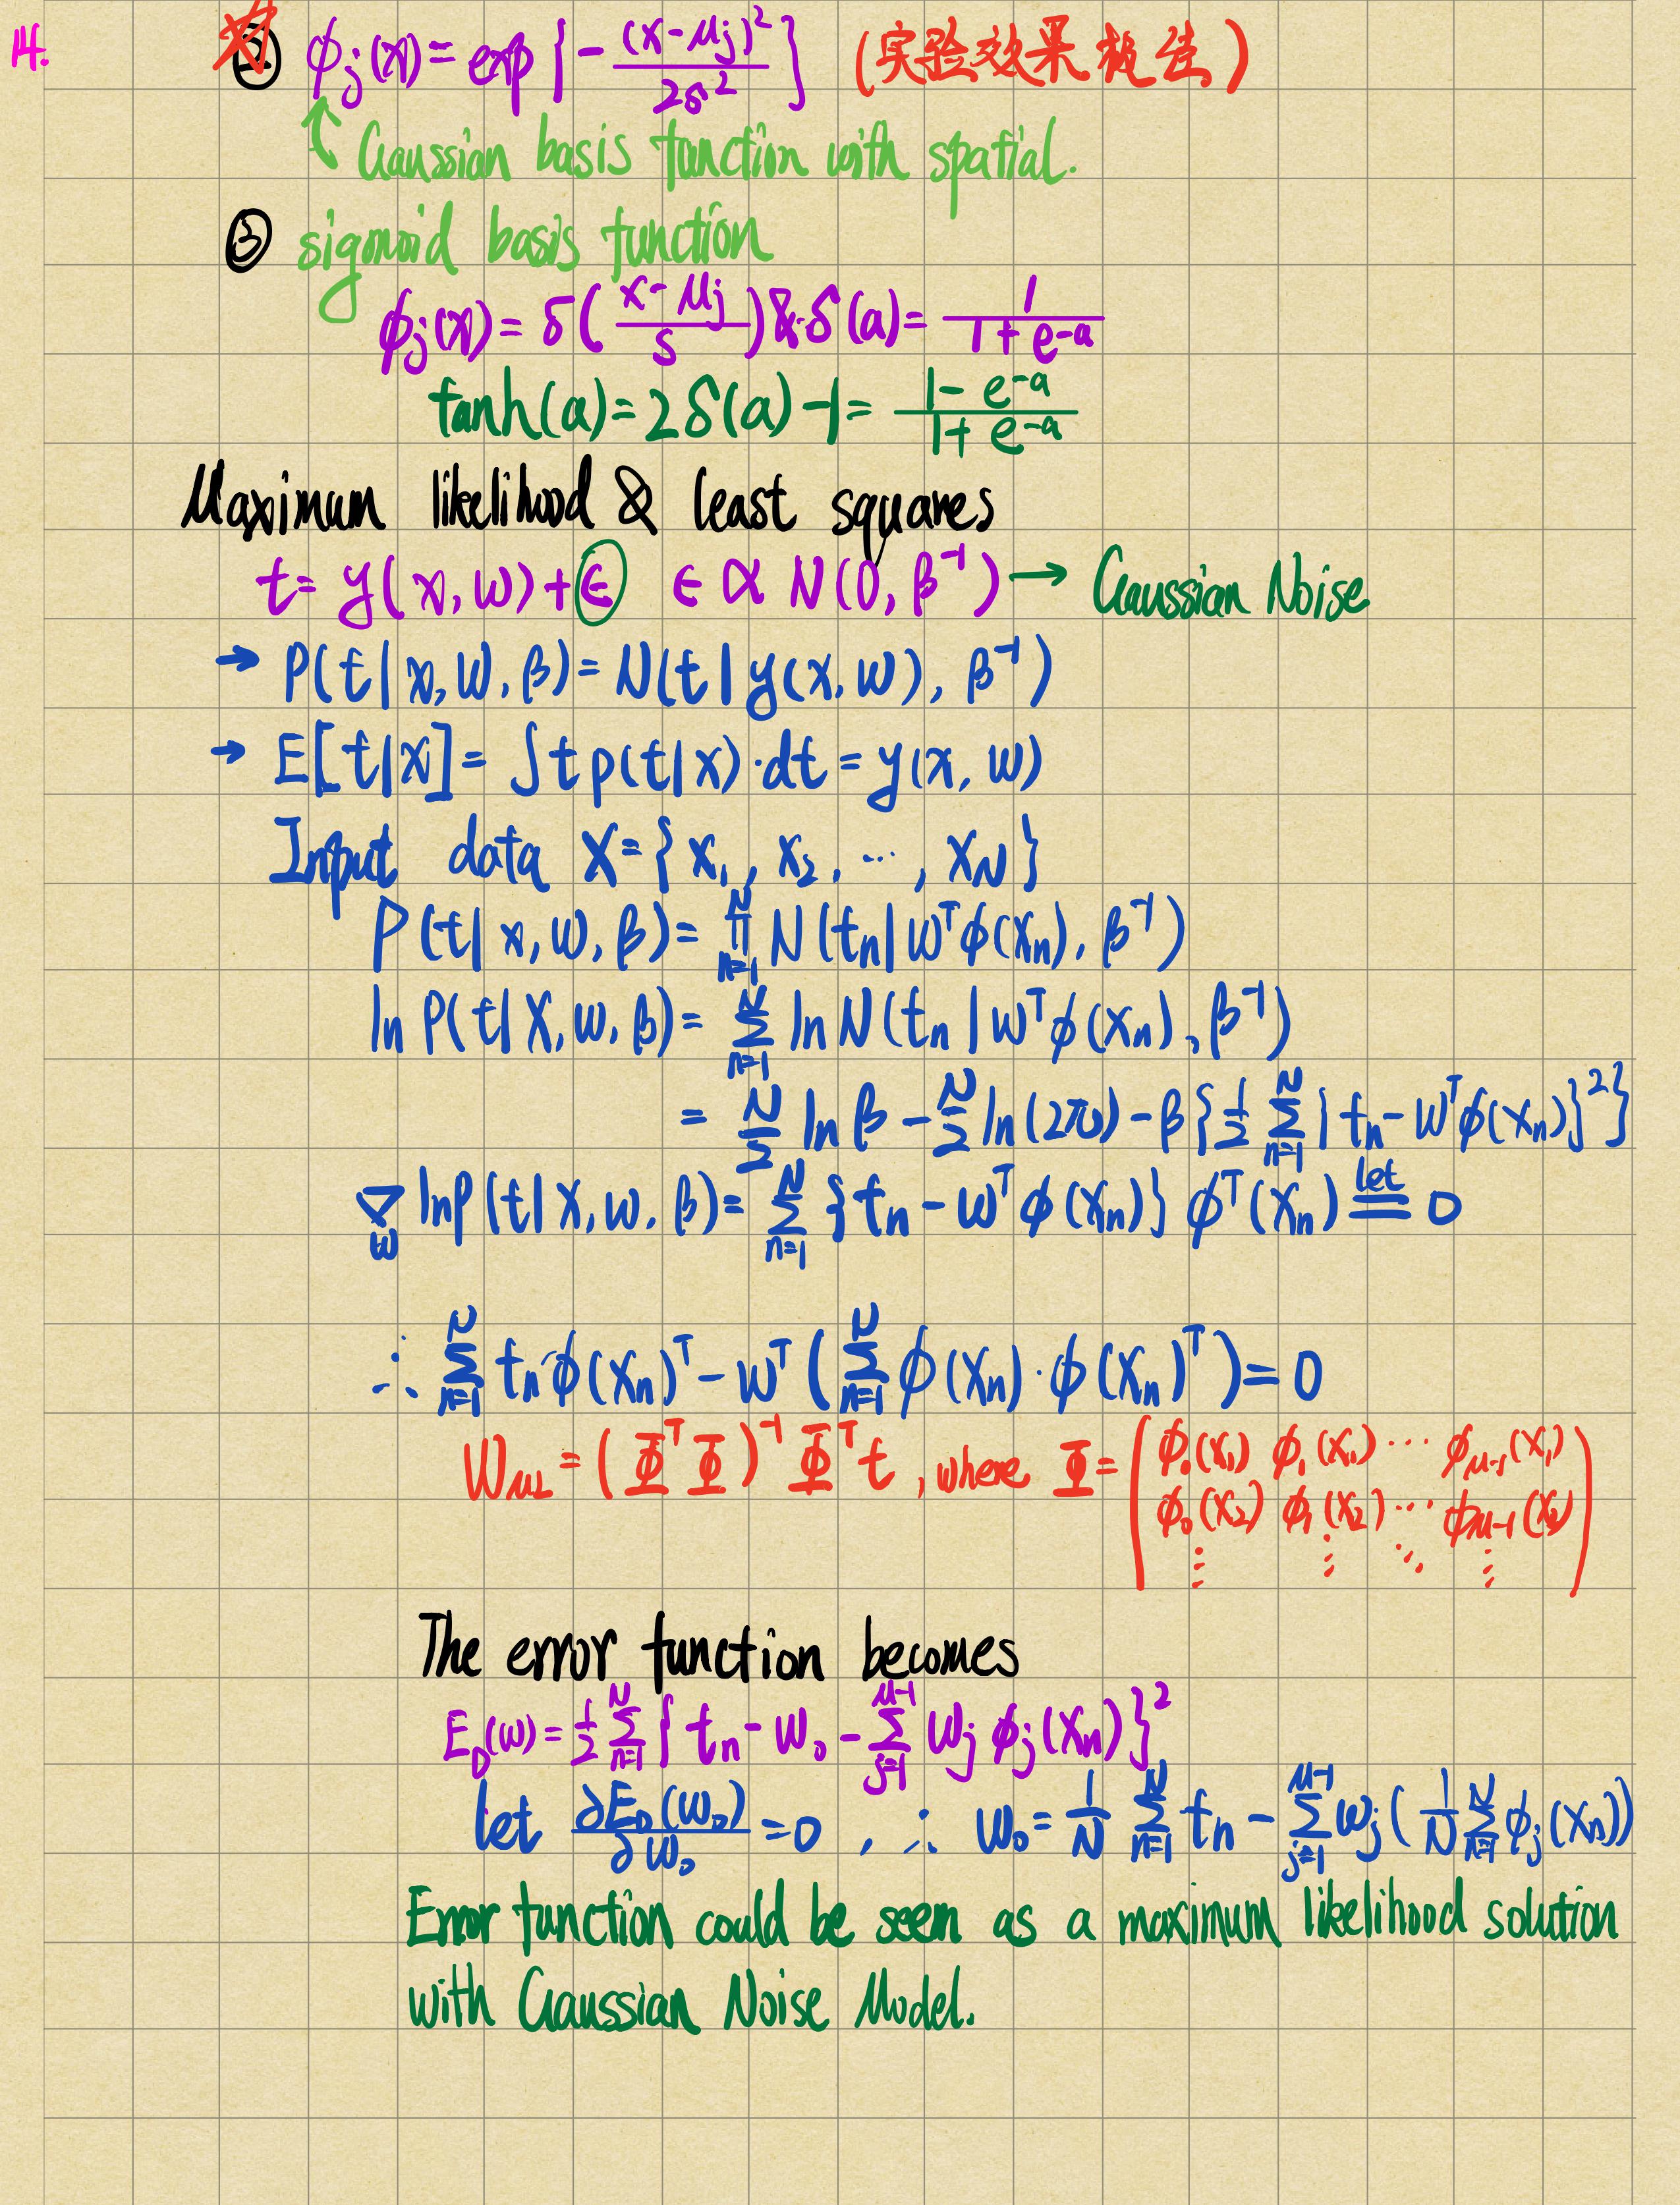 14.
② ϕj(x) = exp{-(x-μj)²/2s²} (实验效果极佳)
Gaussian basis function with spatial.
③ sigmoid basis function
ϕj(x) = δ((x-μj)/s) & δ(a) = 1/(1+e^-a)
tanh(a) = 2δ(a)-1 = (1-e^-a)/(1+e^-a)
Maximum likelihood & least squares
t = y(x,w)+ϵ ϵ ∝ N(0,β^-1) → Gaussian Noise
→ P(t|x,w,β) = N(t|y(x,w),β^-1)
→ E[t|x] = ∫tp(t|x)·dt = y(x,w)
Input data X={x₁, x₂, ..., x_N}
P(t|x,w,β) = ∏_{n=1}^N N(tn|w^Tϕ(xn),β^-1)
ln P(t|X,w,β) = Σ_{n=1}^N ln N(tn|w^Tϕ(xn),β^-1)
= N/2 ln β - N/2 ln(2π) - β{1/2 Σ_{n=1}^N {tn-w^Tϕ(xn)}²}
∇_w lnp(t|X,w,β) = Σ_{n=1}^N {tn-w^Tϕ(xn)} ϕ^T(xn) let = 0
∴ Σ_{n=1}^N tn·ϕ(xn)^T - w^T(Σ_{n=1}^N ϕ(xn)·ϕ(xn)^T) = 0
W_ML = (Φ^TΦ)^-1 Φ^T t, where Φ = (ϕ₀(x₁) ϕ₁(x₁) ... ϕ_{M-1}(x₁)
ϕ₀(x₂) ϕ₁(x₂) ... ϕ_{M-1}(x₂)
⋮ ⋮ ⋱ ⋮)
The error function becomes
E_D(w) = 1/2 Σ_{n=1}^N {tn-w₀-Σ_{j=1}^{M-1} wj ϕj(xn)}²
let ∂E_D(w₀)/∂w₀ = 0, ∴ w₀ = 1/N Σ_{n=1}^N tn - Σ_{j=1}^{M-1} wj(1/N Σ_{n=1}^N ϕj(xn))
Error function could be seem as a maximum likelihood solution
with Gaussian Noise Model.